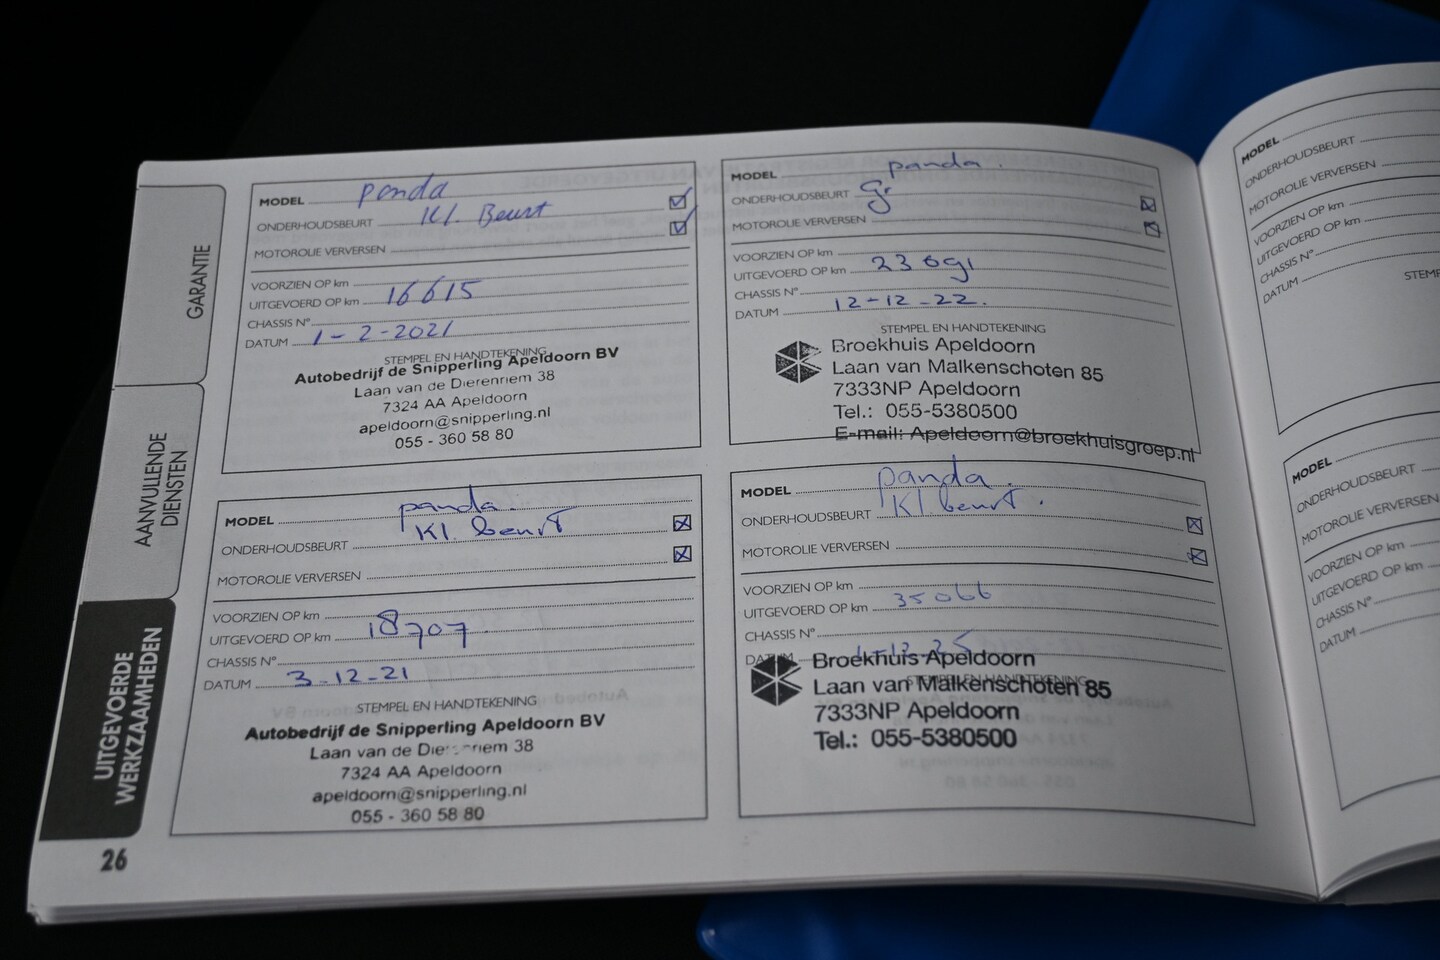 GARANTIE
AANVULLENDE
DIENSTEN
UITGEVOERDE
WERKZAAMHEDEN
26
MODEL panda
ONDERHOUDSBEURT Kl. Beurt
MOTOROLIE VERVERSEN
VOORZIEN OP km
UITGEVOERD OP km 16615
CHASSIS N°
DATUM 1-2-2021
STEMPEL EN HANDTEKENING
Autobedrijf de Snipperling Apeldoorn BV
Laan van de Dierenriem 38
7324 AA Apeldoorn
apeldoorn@snipperling.nl
055 - 360 58 80
MODEL panda.
ONDERHOUDSBEURT Kl. beurt
MOTOROLIE VERVERSEN
VOORZIEN OP km
UITGEVOERD OP km 18707.
CHASSIS N°
DATUM 3-12-21
STEMPEL EN HANDTEKENING
Autobedrijf de Snipperling Apeldoorn BV
Laan van de Dierenriem 38
7324 AA Apeldoorn
apeldoorn@snipperling.nl
055 - 360 58 80
MODEL panda.
ONDERHOUDSBEURT gr
MOTOROLIE VERVERSEN
VOORZIEN OP km
UITGEVOERD OP km 23091
CHASSIS N°
DATUM 12-12-22.
STEMPEL EN HANDTEKENING
Broekhuis Apeldoorn
Laan van Malkenschoten 85
7333NP Apeldoorn
Tel.: 055-5380500
E-mail: Apeldoorn@broekhuisgroep.nl
MODEL panda.
ONDERHOUDSBEURT Kl beurt.
MOTOROLIE VERVERSEN
VOORZIEN OP km
UITGEVOERD OP km 35066
CHASSIS N°
DATUM
STEMPEL EN HANDTEKENING
Broekhuis Apeldoorn
Laan van Malkenschoten 85
7333NP Apeldoorn
Tel.: 055-5380500
MODEL
ONDERHOUDSBEURT
MOTOROLIE VERVERSEN
VOORZIEN OP km
UITGEVOERD OP km
CHASSIS N°
DATUM
STEMP
MODEL
ONDERHOUDSBEURT
MOTOROLIE VERVERSEN
VOORZIEN OP km
UITGEVOERD OP km
CHASSIS N°
DATUM